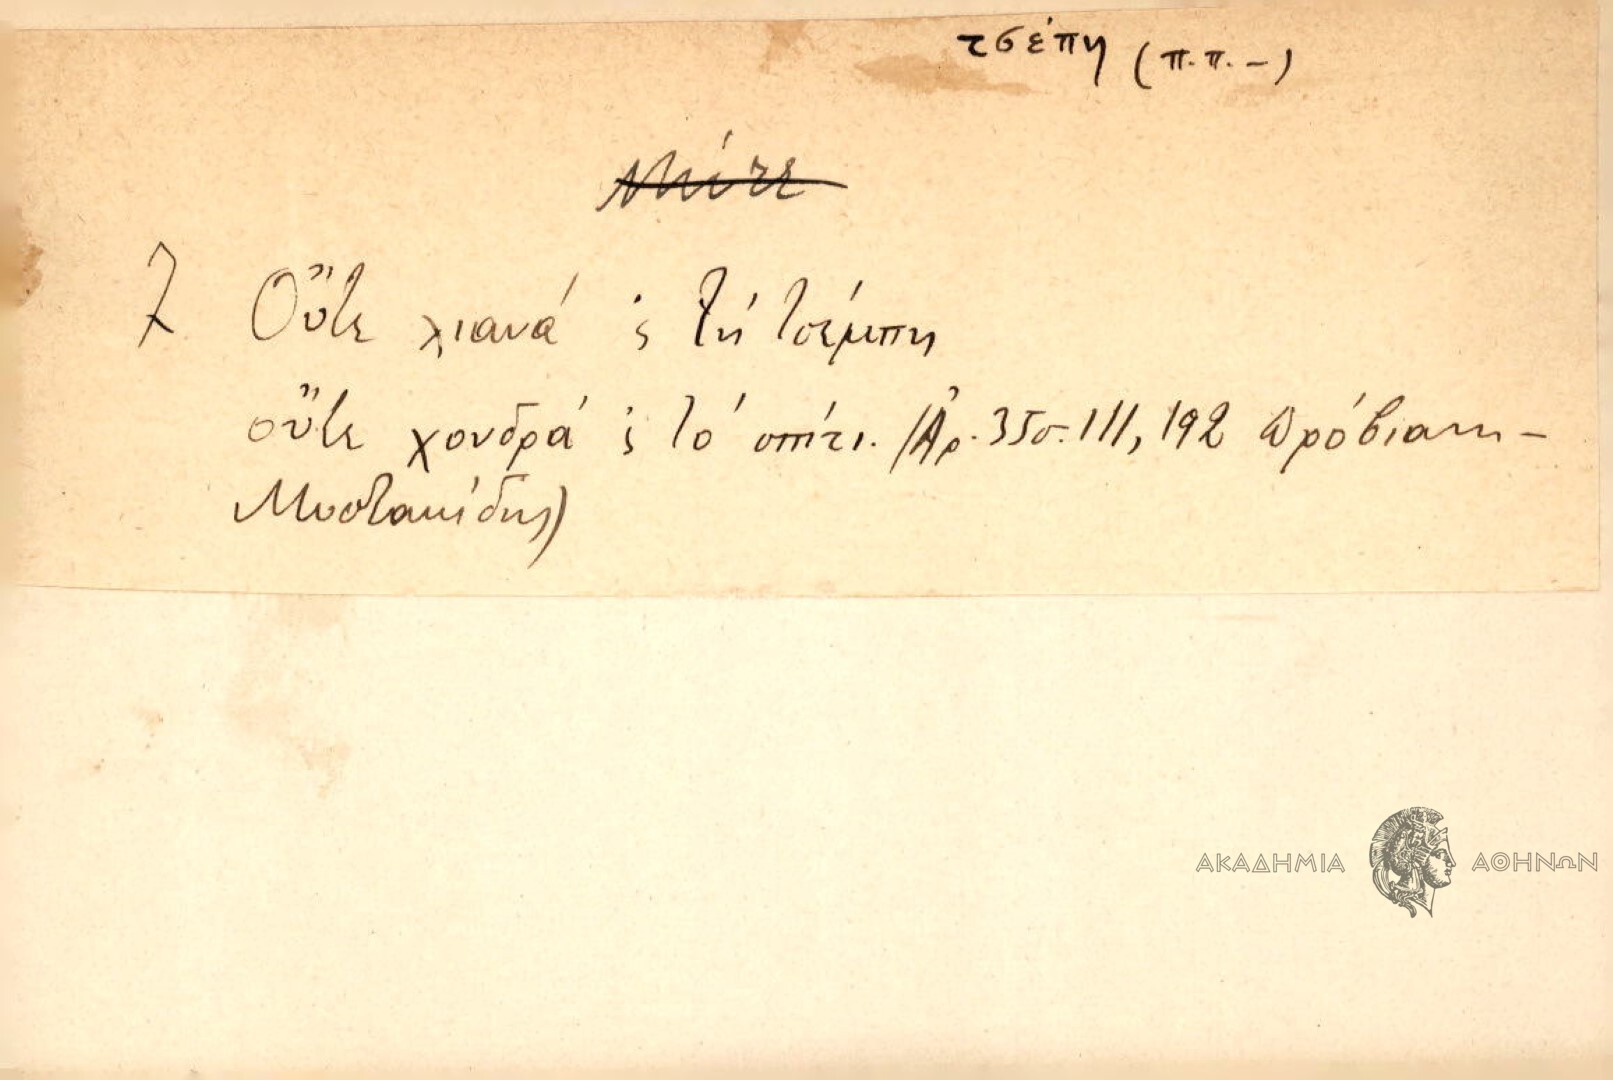 τσέπη (π.π. -)
7. Οὔτε λιανά 'ς τὴ τσέμπη
οὔτε χονδρά 'ς τὸ σπίτι. (Ἀρ. 355. 111, 192 Δρόβιανη -
Μυστακίδης)
ΑΚΑΔΗΜΙΑ ΑΘΗΝΩΝ